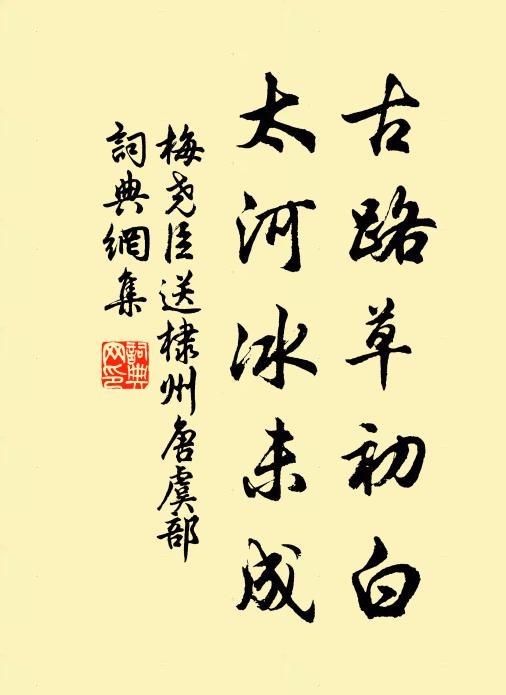 古路草初白
太河冰未成
梅尧臣送棣州唐虞部
詞典網集
詞典
网印